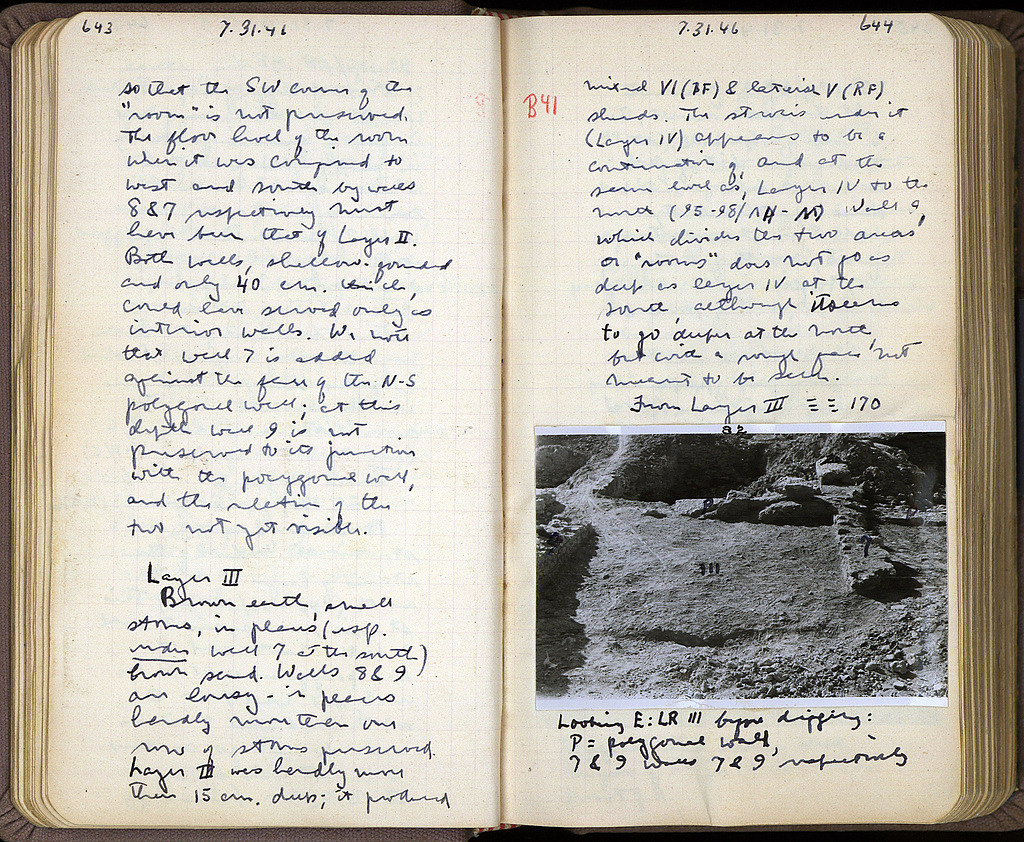 643
7.31.46
so that the SW corner of the
"room" is not preserved.
The floor level of the room
when it was confined to
west and south by walls
8 & 7 respectively must
have been that of Layer II.
Both walls, shallow-founded
and only 40 cm. thick,
could have served only as
interior walls. We note
that wall 7 is added
against the face of the N-S
polygonal wall; at this
depth wall 9 is not
preserved to its junction
with the polygonal wall,
and the relation of the
two not yet visible.
Layer III
Brown earth, small
stones, in places (esp.
under wall 7 at the south)
brown sand. Walls 8 & 9
are lousy - in places
hardly more than one
row of stones preserved.
Layer III was hardly more
than 15 cm. deep; it produced
7.31.46
644
B41
mixed VI (BF) & V (RF)
sherds. The stratum under it
(Layer IV) appears to be a
continuation of, and at the
same level as, Layer IV to the
north (95-98/ Wall 9,
which divides the two areas
or "rooms" does not go as
deep as layer IV at the
south, although it seems
to go deeper at the north,
but with a rough face not
meant to be seen.
From Layer III 170
82
P
7
III
Looking E: LR III before digging:
P = polygonal wall,
7 & 9 walls 7 & 9 respectively